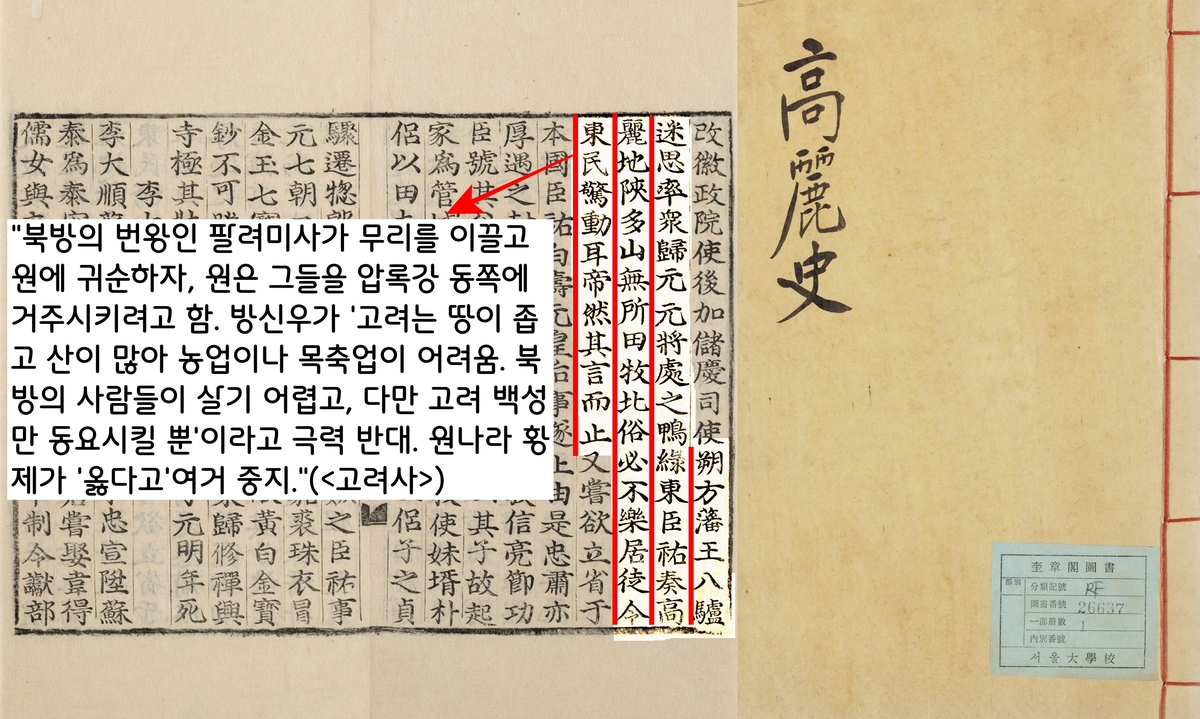 改徽政院使後加儲慶司使朔方藩王八驢
迷思率衆歸元元將處之鴨綠東臣祐奏高
麗地陜多山無所田牧北俗必不樂居徒令
東民驚動耳帝然其言而止又嘗欲立省于
本國臣祐白壽元皇后事遂止由是忠肅亦
厚遇之 信亮節功
臣號其 其子故起
家爲管 使妹壻朴
侶以田 侶子之貞
驟遷惣 之臣祐事
元七朝 裘珠衣冒
金玉七寶 黃白金寶
鈔不可 歸修禪興
寺極其 元明年死
李大
李大順 忠宣陞蘇
泰爲泰 嘗娶韋得
儒女與 制令讞部
"북방의 번왕인 팔려미사가 무리를 이끌고
원에 귀순하자, 원은 그들을 압록강 동쪽에
거주시키려고 함. 방신우가 '고려는 땅이 좁
고 산이 많아 농업이나 목축업이 어려움. 북
방의 사람들이 살기 어렵고, 다만 고려 백성
만 동요시킬 뿐'이라고 극력 반대. 원나라 황
제가 '옳다고'여겨 중지."(<고려사>)
高麗史
奎章閣圖書
部別
分類記號 RF
圖書番號 26637
一部冊數 1
內別番號
서울大學校